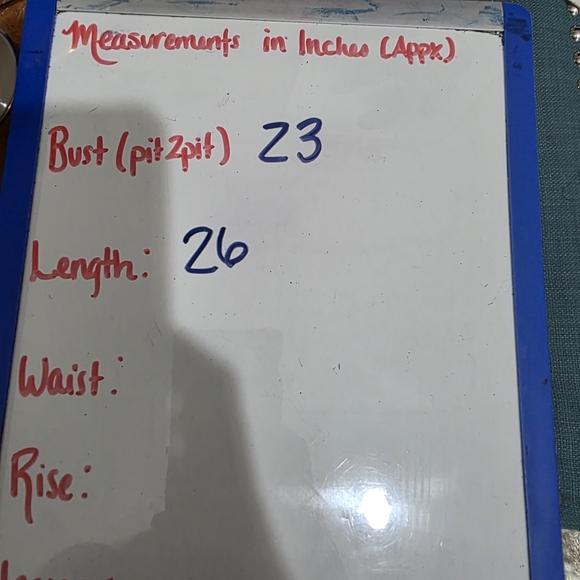 Measurements in Inches (Appx)
Bust (pit2pit) 23
Length: 26
Waist:
Rise: